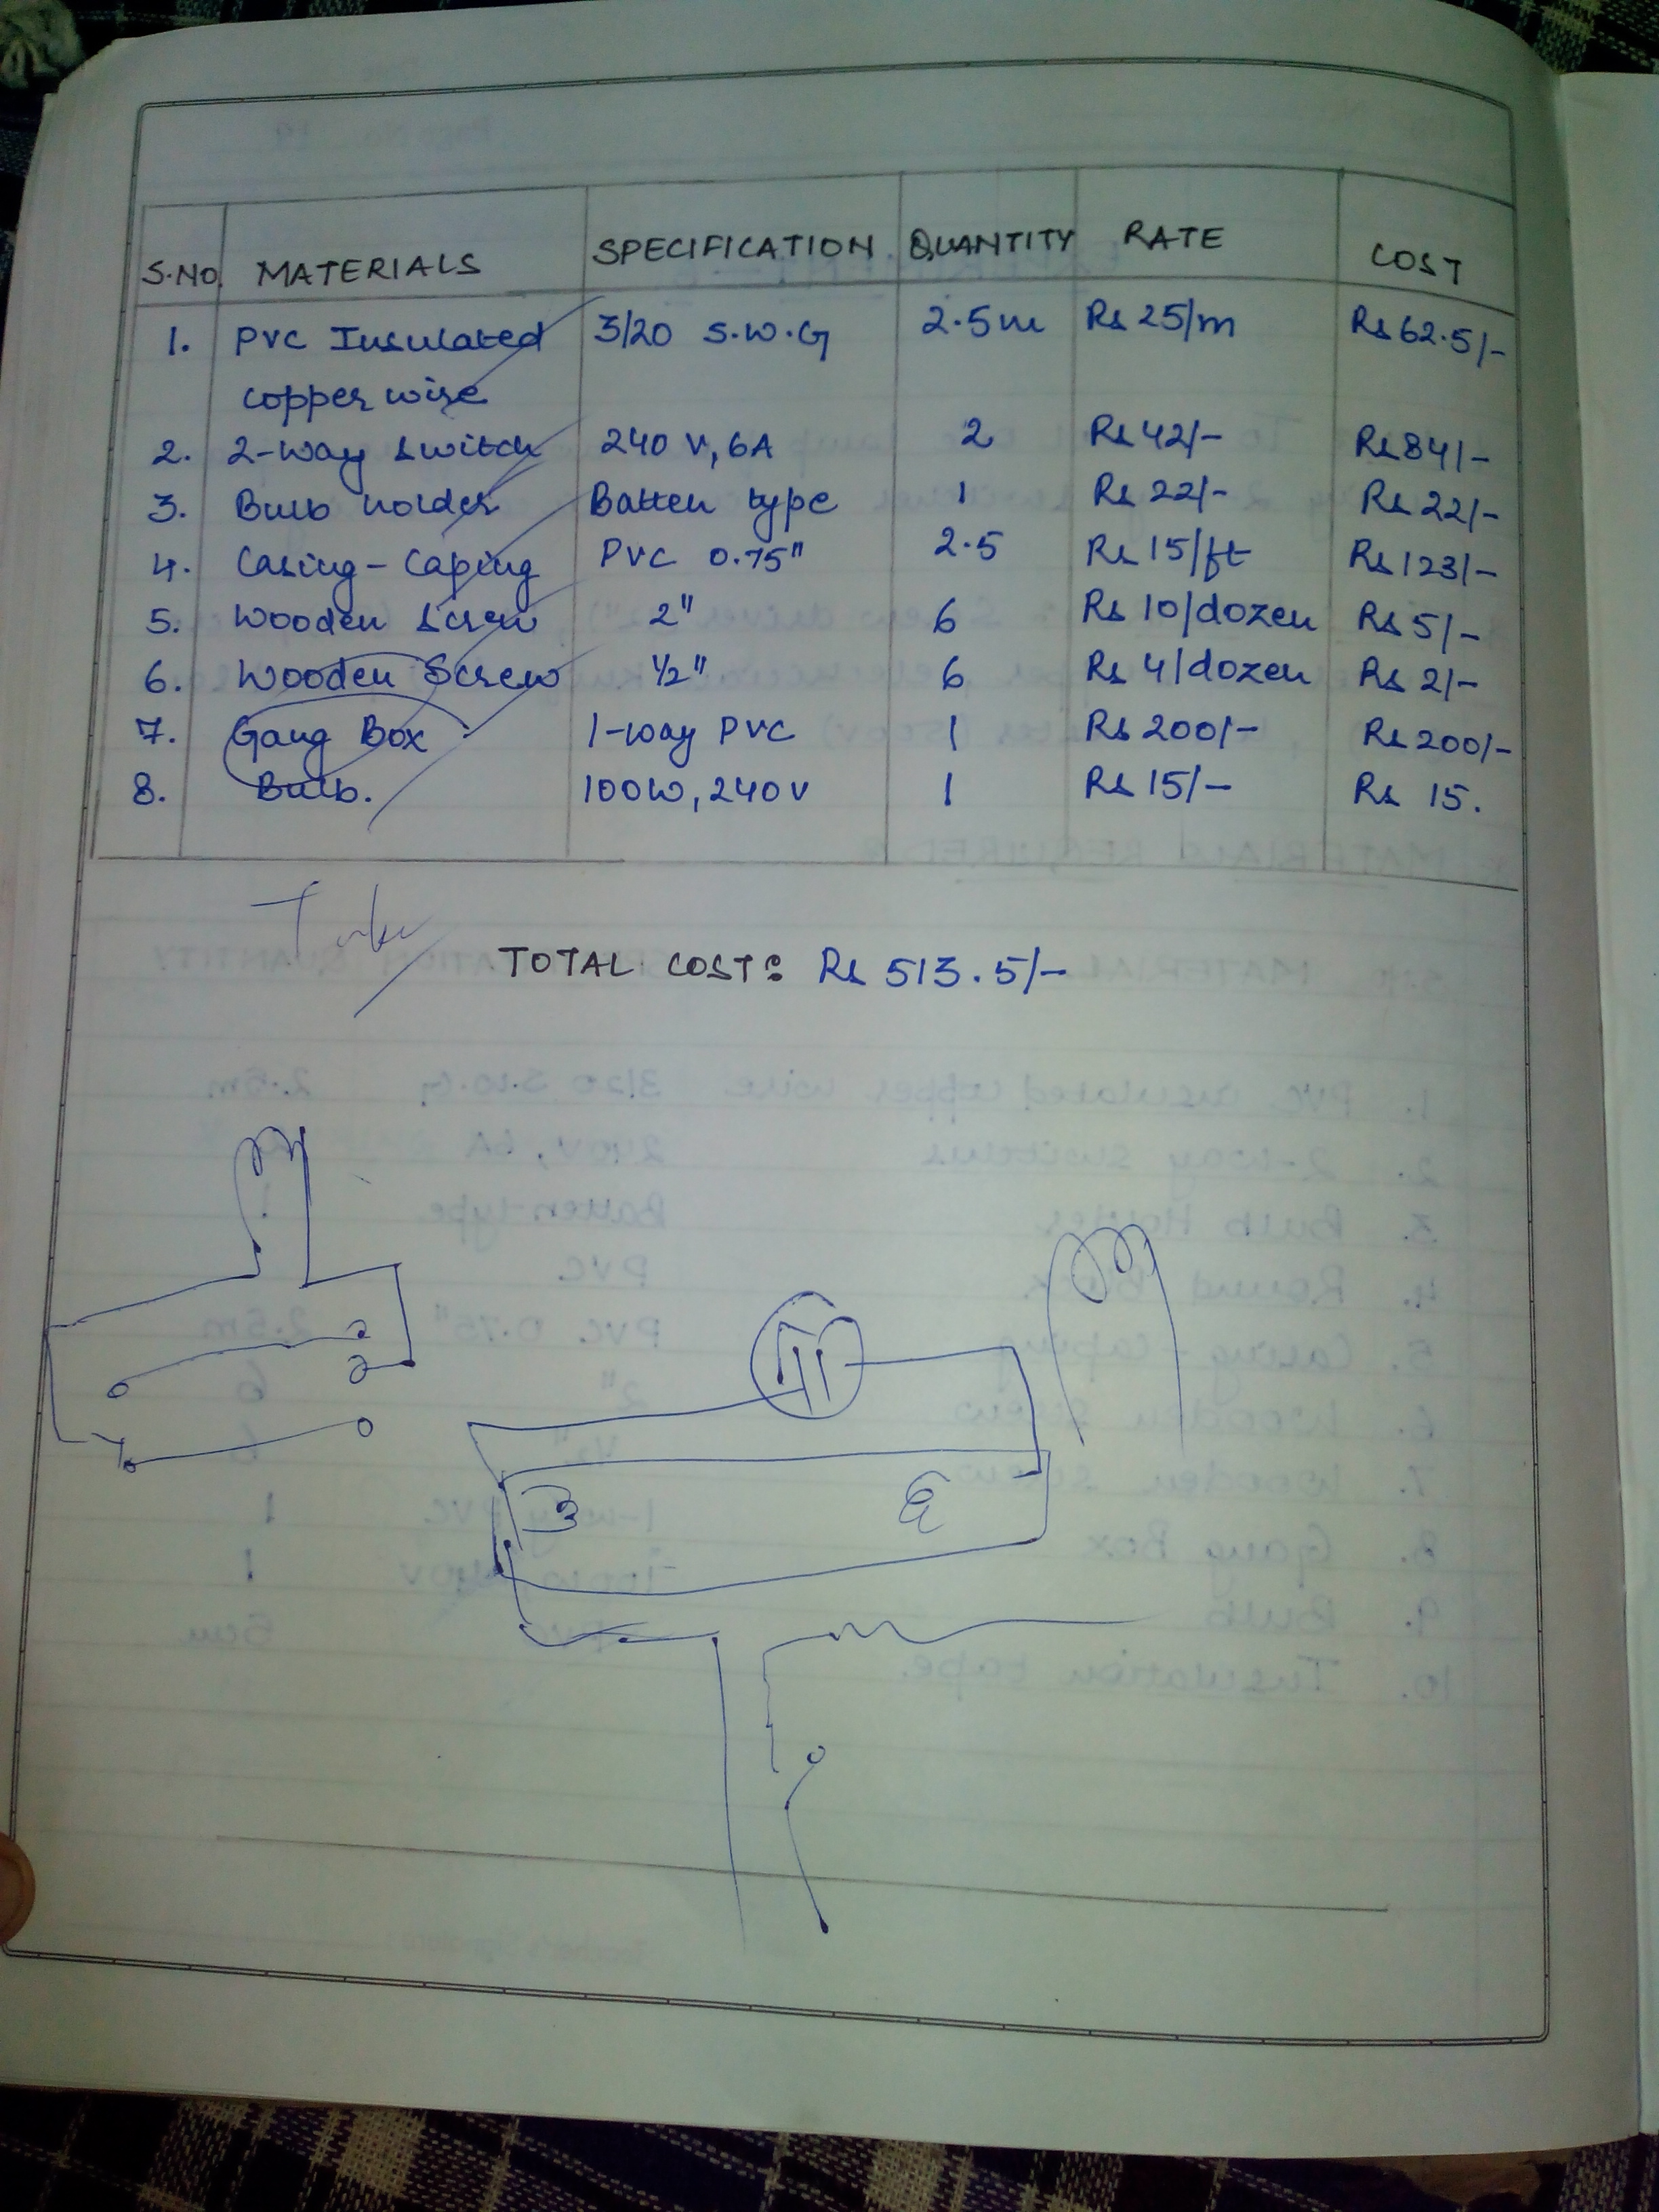 S.NO. MATERIALS SPECIFICATION QUANTITY RATE COST
1. PVC Insulated 3/20 S.W.G 2.5m Rs 25/m Rs 62.5/-
copper wire
2. 2-way switch 240 V, 6A 2 Rs 42/- Rs 84/-
3. Bulb holder Batten type 1 Rs 22/- Rs 22/-
4. Casing-Caping PVC 0.75" 2.5 Rs 15/ft Rs 123/-
5. Wooden Screw 2" 6 Rs 10/dozen Rs 5/-
6. Wooden Screw 1/2" 6 Rs 4/dozen Rs 2/-
7. Gang Box 1-way PVC 1 Rs 200/- Rs 200/-
8. Bulb. 100W, 240V 1 Rs 15/- Rs 15.
TOTAL COST: Rs 513.5/-